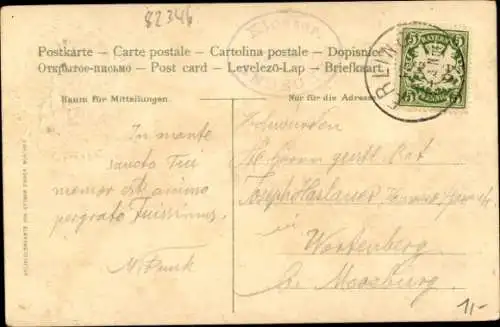 82346
Postkarte – Carte postale – Cartolina postale – Dopisnice
Открытое письмо – Post card – Levelező-Lap – Briefkaart
Raum für Mitteilungen.
Nur für die Adresse
Kloster
ERLING
BAYERN
5 5
PFENNIG
In monte
sancto Tui
memor est animo
pergrato Tuissimus.
M. Funk
Hochwürden
Herrn geistl. Rat
Joseph Haslauer
in
Wartenberg
b. Moosburg.
1,-